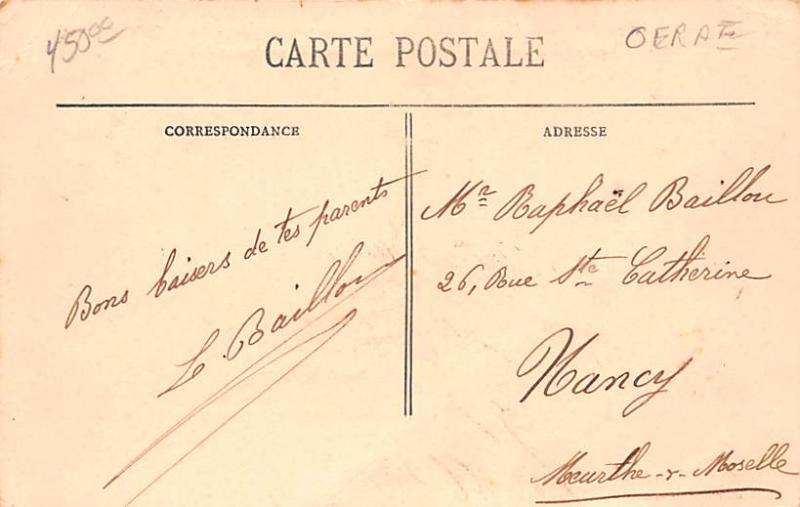 45000
CARTE POSTALE
CORRESPONDANCE
Bons baisers de tes parents
L. Baillou
ADRESSE
Mr Raphaël Baillou
26, Rue Ste Catherine
Nancy
Meurthe-&-Moselle